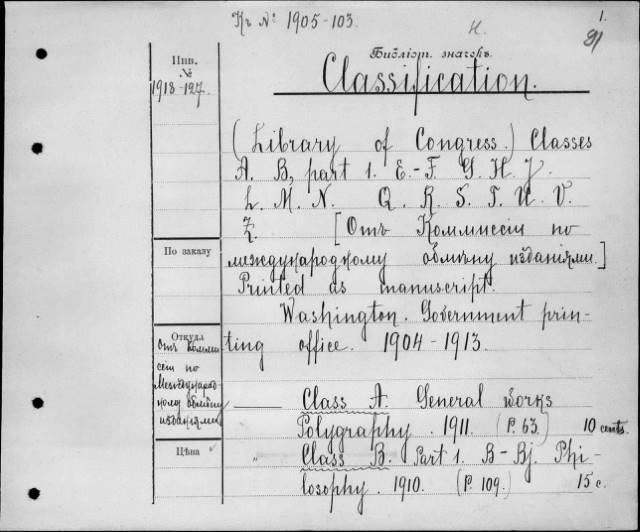 Къ № 1905-103.
И.
1.
91
Библіот. значекъ.
Инв.
№
1918-127.
Classification.
(Library of Congress.) Classes
A. B, part 1. E.-F. G. H. J.
L. M. N. Q. R. S. T. U. V.
Z. [Отъ Коммиссіи по
международному обмѣну изданіями.]
Printed as manuscript.
Washington. Government prin-
ting office. 1904-1913.
По заказу
Откуда
отъ Комми
сіи по
Международ-
ному обмѣну
изданіями
Цѣна
Class A. General works
Polygraphy. 1911. (P. 63.) 10 cents.
" Class B. Part 1. B-Bj. Phi-
losophy. 1910. (P. 109.) 15 c.